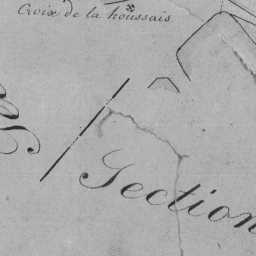 Croix de la houssais
Section